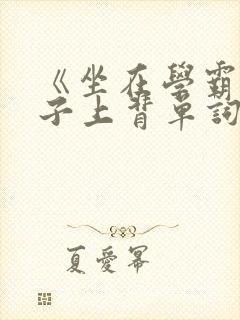 《坐在學霸
子上背單詞
夏愛幂